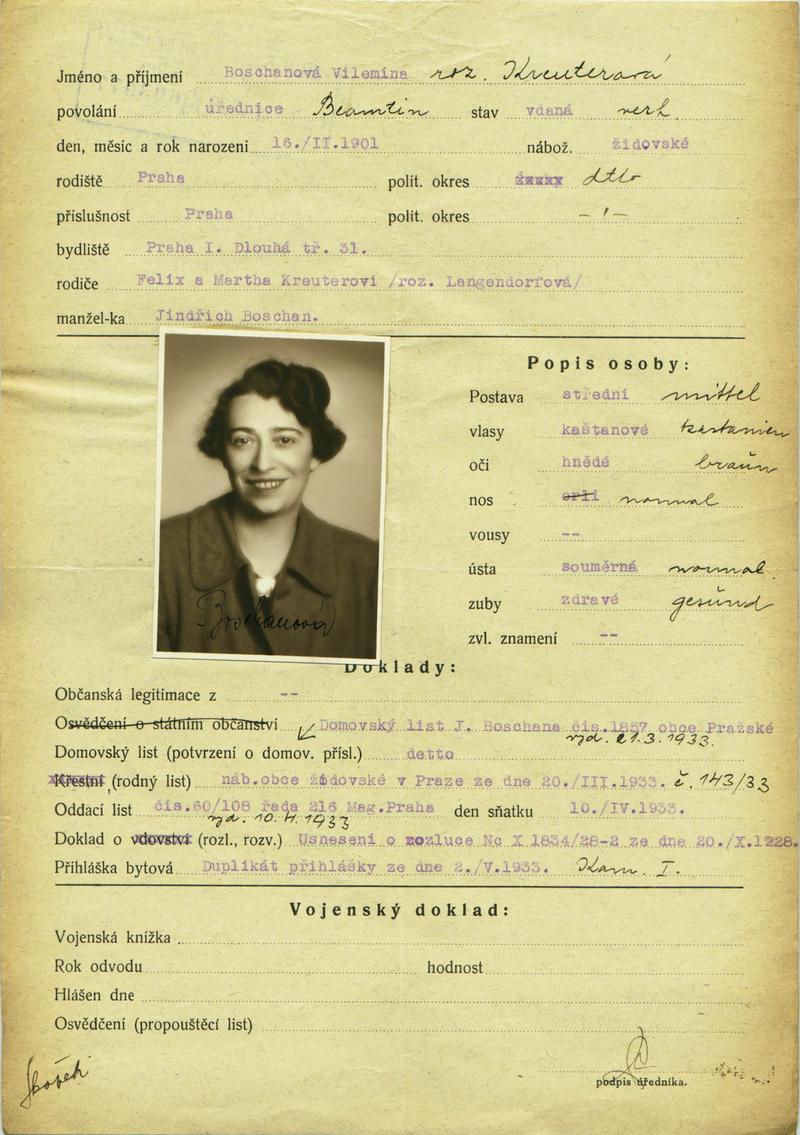 Jméno a příjmení Boschanová Vilemína roz. Kreuterová
povolání úřednice Beamtin stav vdaná verh.
den, měsíc a rok narození 16./II.1901 nábož. židovské
rodiště Praha polit. okres dtto
příslušnost Praha polit. okres – ' –
bydliště Praha I. Dlouhá tř. 31.
rodiče Felix a Martha Kreuterovi /roz. Langendorfová/
manžel-ka Jindřich Boschan.
Popis osoby:
Postava střední mittel
vlasy kaštanové kastanien
oči hnědé braun
nos orlí normal
vousy --
ústa souměrná normal
zuby zdravé gesund
zvl. znamení --
Boschanová
Doklady:
Občanská legitimace z --
Osvědčení o státním občanství Domovský list J. Boschana čís.1857 obce Pražské
vyd. 21.3.1933.
Domovský list (potvrzení o domov. přísl.) detto
Křestní (rodný list) náb.obce židovské v Praze ze dne 20./III.1933. č. 143/33
Oddací list čís.60/108 řada 216 Mag.Praha den sňatku 10./IV.1933.
vyd. 10.4.1933
Doklad o vdovství (rozl., rozv.) Usnesení o rozluce Nc X 1834/28-2 ze dne 20./X.1928.
Přihláška bytová Duplikát přihlášky ze dne 2./V.1933. Kom. I.
Vojenský doklad:
Vojenská knížka
Rok odvodu hodnost
Hlášen dne
Osvědčení (propouštěcí list)
podpis úředníka.